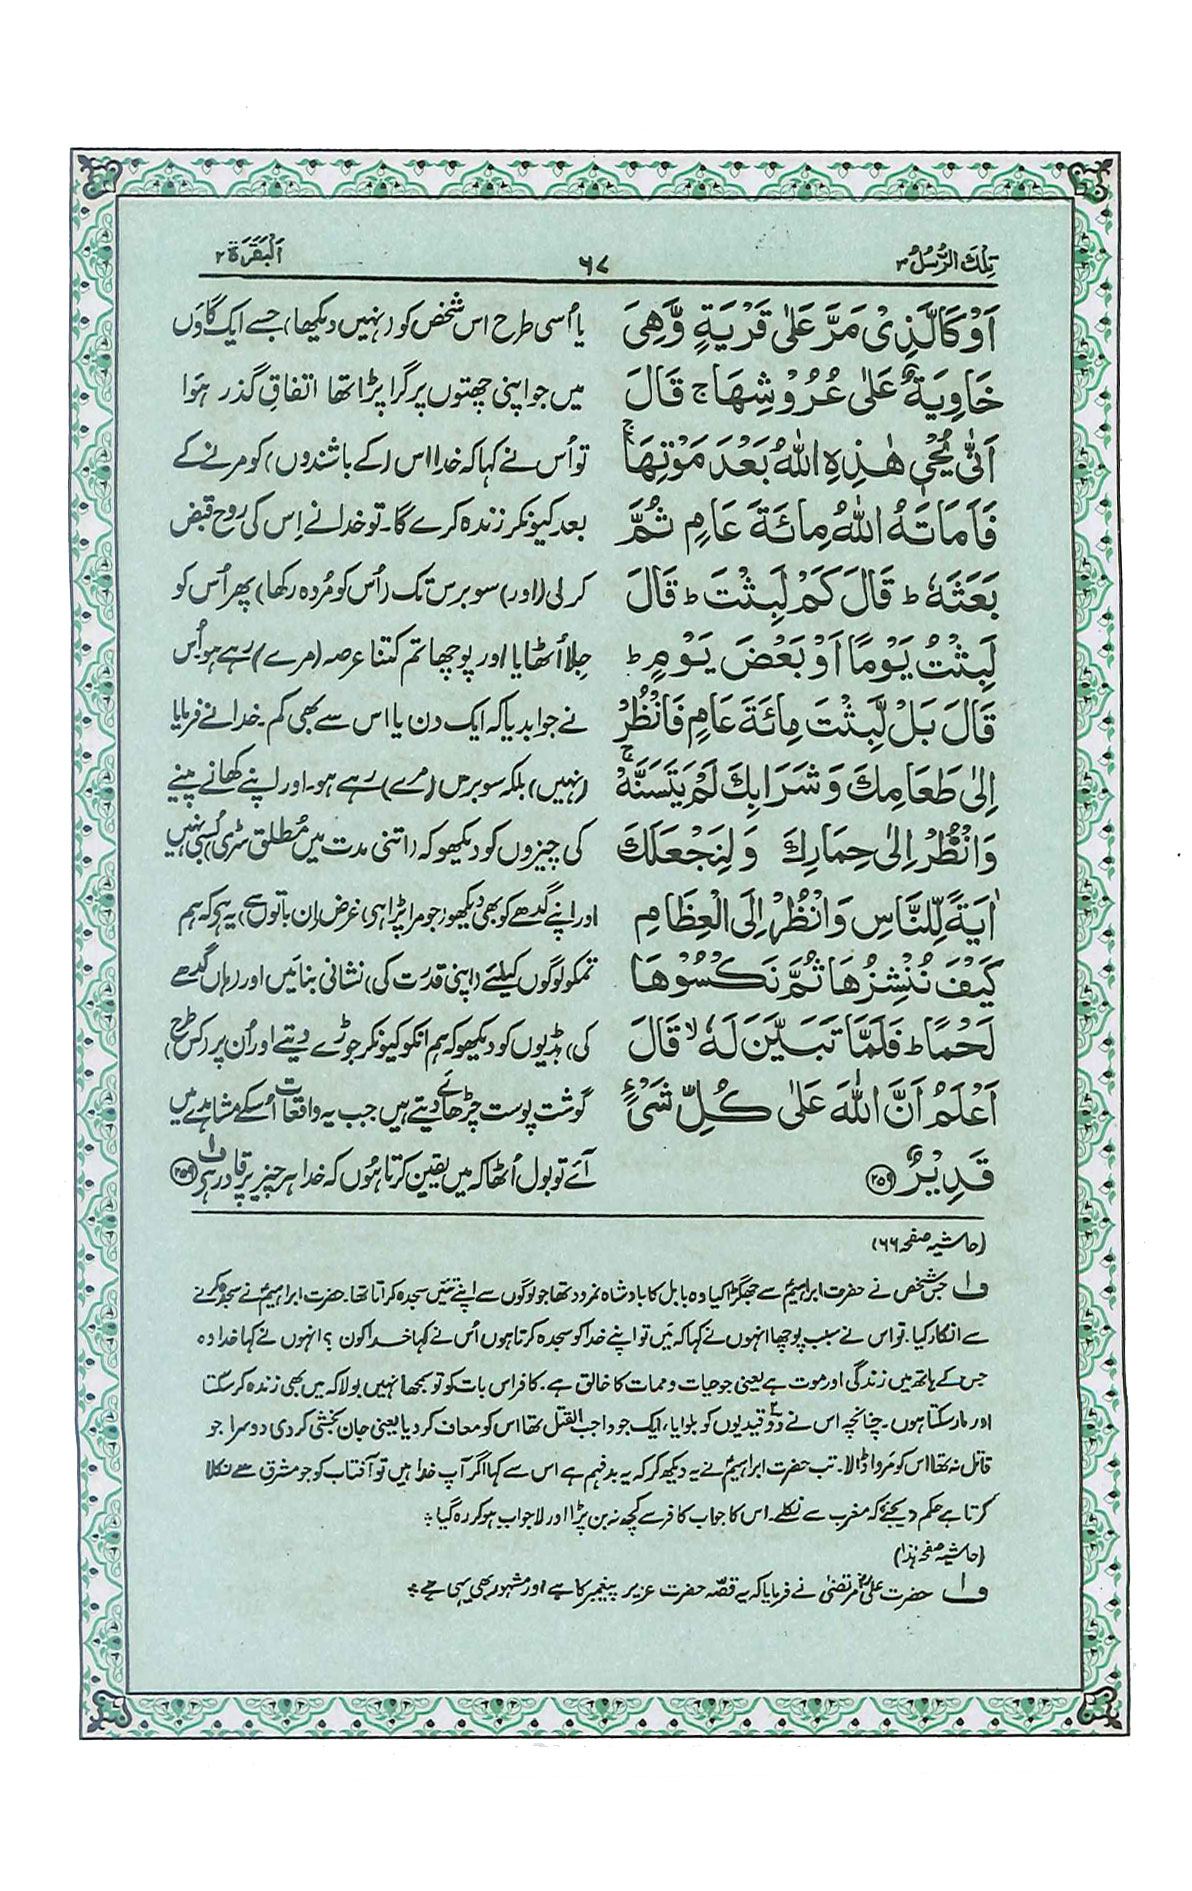 تِلْكَ الرُّسُلُ ٣
٦٧
اَلْبَقَرَة ٢
اَوْ كَالَّذِىْ مَرَّ عَلٰى قَرْيَةٍ وَّهِىَ
خَاوِيَةٌ عَلٰى عُرُوْشِهَا ج قَالَ
اَنّٰى يُحْىٖ هٰذِهِ اللّٰهُ بَعْدَ مَوْتِهَا ج
فَاَمَاتَهُ اللّٰهُ مِائَةَ عَامٍ ثُمَّ
بَعَثَهٗ ط قَالَ كَمْ لَبِثْتَ ط قَالَ
لَبِثْتُ يَوْمًا اَوْ بَعْضَ يَوْمٍ ط
قَالَ بَلْ لَّبِثْتَ مِائَةَ عَامٍ فَانْظُرْ
اِلٰى طَعَامِكَ وَشَرَابِكَ لَمْ يَتَسَنَّهْ ج
وَانْظُرْ اِلٰى حِمَارِكَ وَلِنَجْعَلَكَ
اٰيَةً لِّلنَّاسِ وَانْظُرْ اِلَى الْعِظَامِ
كَيْفَ نُنْشِزُهَا ثُمَّ نَكْسُوْهَا
لَحْمًا ط فَلَمَّا تَبَيَّنَ لَهٗ لا قَالَ
اَعْلَمُ اَنَّ اللّٰهَ عَلٰى كُلِّ شَىْءٍ
قَدِيْرٌ ۝۲۵۹
یا اُسی طرح اس شخص کو (نہیں دیکھا) جسے ایک گاؤں
میں جو اپنی چھتوں پر گرا پڑا تھا اتفاقِ گذر ہوا
تو اُس نے کہا کہ خدا اس (کے باشندوں) کو مرنے کے
بعد کیونکر زندہ کرے گا۔ تو خدا نے اِس کی روح قبض
کر لی (اور) سو برس تک (اُس کو مُردہ رکھا) پھر اُس کو
جِلا اُٹھایا اور پوچھا تم کتنا عرصہ (مرے) رہے ہو اُس
نے جواب دیا کہ ایک دن یا اس سے بھی کم۔ خدا نے فرمایا
(نہیں) بلکہ سو برس (مرے) رہے ہو۔ اور اپنے کھانے پینے
کی چیزوں کو دیکھو کہ (اتنی مدت میں مُطلق سڑی بُسی نہیں
اور اپنے گدھے کو بھی دیکھو (جو مرا پڑا ہی) غرض (ان باتوں سے) یہ ہی کہ ہم
تمکو لوگوں کیلئے (اپنی قدرت کی) نشانی بنائیں اور (ہاں گدھے
کی) ہڈیوں کو دیکھو کہ ہم انکو کیونکر جوڑے دیتے اور اُن پر (کس طرح)
گوشت پوست چڑھائے دیتے ہیں جب یہ واقعات اُسکے مشاہدے میں
آے تو بول اُٹھا کہ میں یقین کرتا ہوں کہ خدا ہر چیز پر قادر ہی ف۱ ۲۵۹
(حاشیہ صفحہ ۶۶)
ف۱ جس شخص نے حضرت ابراہیمؑ سے جھگڑا کیا وہ بابل کا بادشاہ نمرود تھا جو لوگوں سے اپنے تئیں سجدہ کراتا تھا۔ حضرت ابراہیمؑ نے سجدہ کرنے
سے انکار کیا۔ تو اس نے سبب پوچھا انہوں نے کہا کہ میں تو اپنے خدا کو سجدہ کرتا ہوں اُس نے کہا خدا کون؟ انہوں نے کہا خدا وہ
جس کے ہاتھ میں زندگی اور موت ہے یعنی جو حیات و ممات کا خالق ہے۔ کافر اس بات کو تو سمجھا نہیں بولا کہ میں بھی زندہ کر سکتا
اور مار سکتا ہوں۔ چنانچہ اس نے دو قیدیوں کو بلوایا، ایک جو واجب القتل تھا اس کو معاف کر دیا یعنی جان بخشی کر دی دوسرا جو
قاتل نہ تھا اس کو مروا ڈالا۔ تب حضرت ابراہیمؑ نے یہ دیکھ کر کہ یہ بد فہم ہے اس سے کہا اگر آپ خدا ہیں تو آفتاب کو جو مشرق سے نکلا
کرتا ہے حکم دیجئے کہ مغرب سے نکلے۔ اس کا جواب کافر سے کچھ نہ بن پڑا اور لا جواب ہو کر رہ گیا ؞
(حاشیہ صفحہ ہٰذا)
ف۱ حضرت علی مرتضیٰؓ نے فرمایا کہ یہ قصّہ حضرت عزیر پیغمبر کا ہے اور مشہور بھی یہی ہے ؞